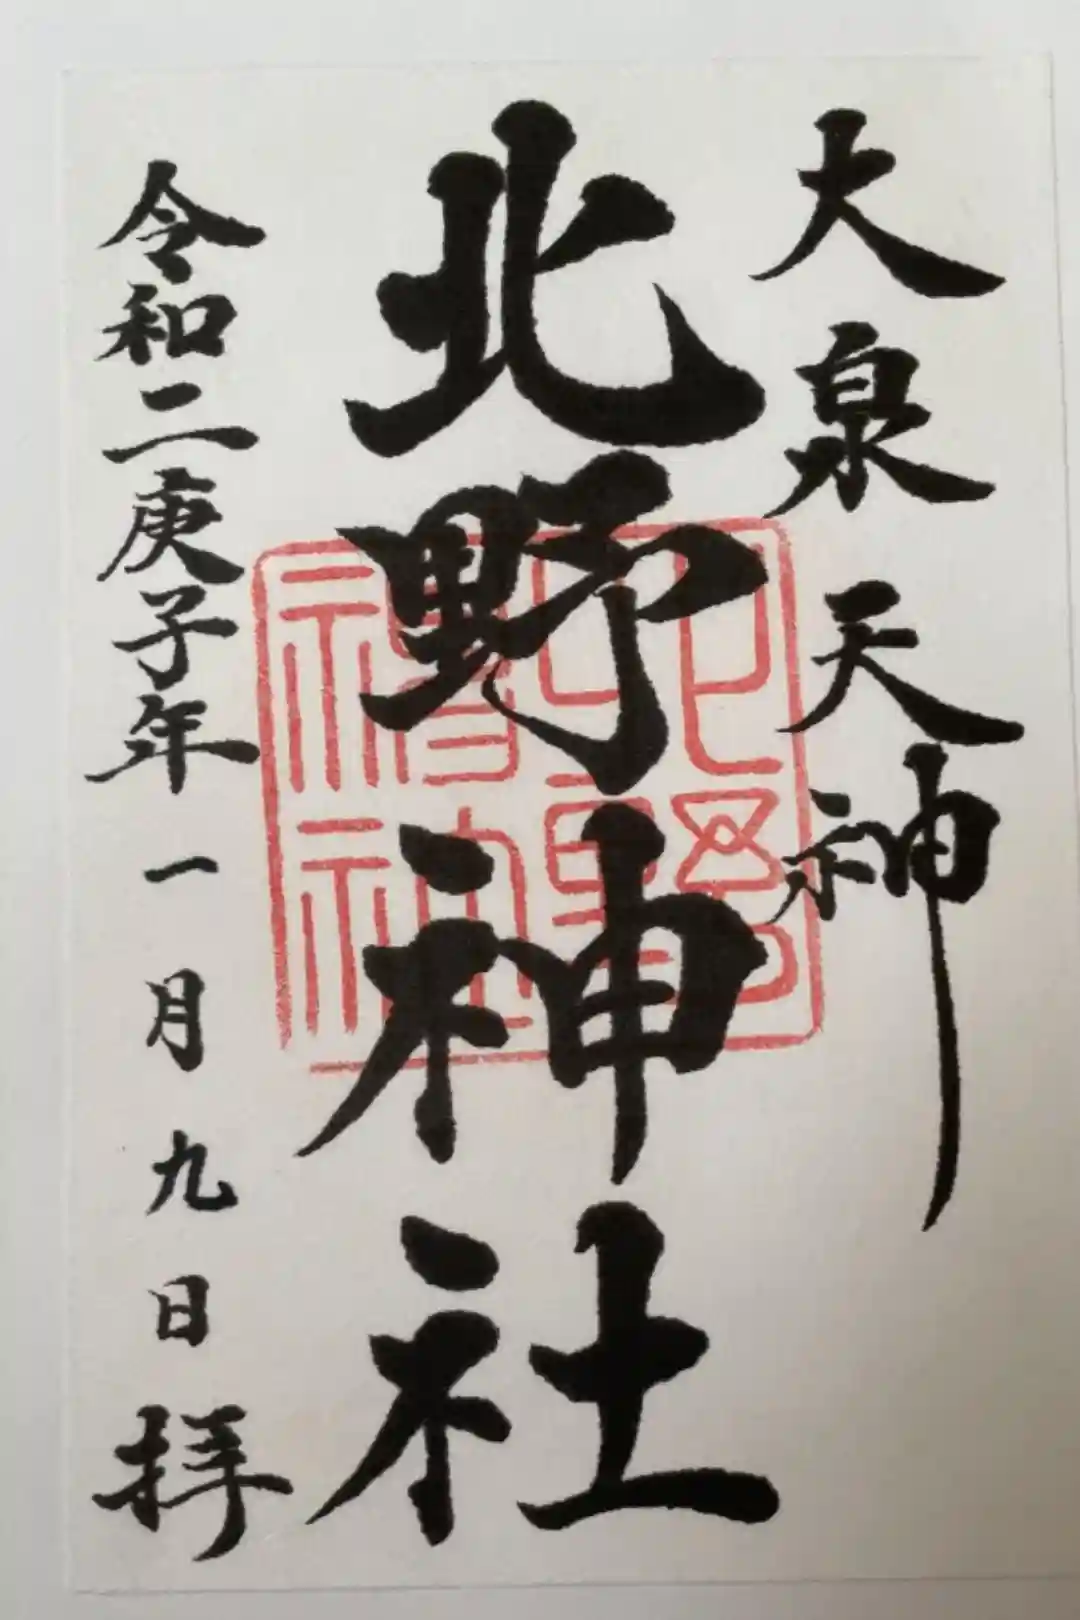 大泉天神
北野神社
令和二庚子年一月九日拝
北野神社